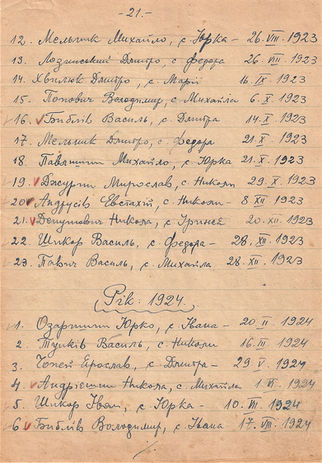 - 21. -
12. Мельник Михайло, с Юрка - 26. VIII. 1923
13. Лозинський Дмитро, с Федора 26. VIII. 1923
14. Хвилюк Дмитро, с Марії 16. IX 1923
15. Попович Володимир, с Михайла 6. X. 1923
16. Библів Василь, с Дмитра 14. X. 1923
17. Мельник Дмитро, с Федора 21. X. 1923
18. Павлишин Михайло, с Юрка 21. X. 1923
19. Джурин Мирослав, с Николи 29. X. 1923
20. Андрусів Евстахій, с Николи - 8 XII 1923
21. Никола, с Гриня 20. XII. 1923
22. Шикор Василь, с Федора - 28. XII. 1923
23. Павич Василь, с Михайла 28. XII. 1923
Рік. 1924.
1. Юрко, с Івана - 20. II. 1924
2. Тутків Василь, с Николи 16. III 1924
3. Чопей Ярослав, с Дмитра - 29. V. 1924
4. Андріешин Никола, с Михайла 1. 1924
5. Шикор Іван, с Юрка 10. III. 1924
6. Библів Володимир, с Івана 17. VIII. 1924